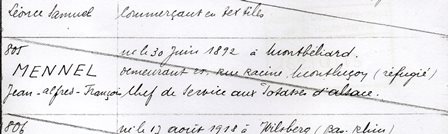 Léonce Samuel Commerçant en textiles
805 né le 30 juin 1892 à Montbéliard.
MENNEL demeurant 25, rue Racine Montluçon (réfugié)
Jean-Alfred-François Chef de Service aux Potasses d'Alsace.
806 né le 13 août 1918 à (Bas Rhin)